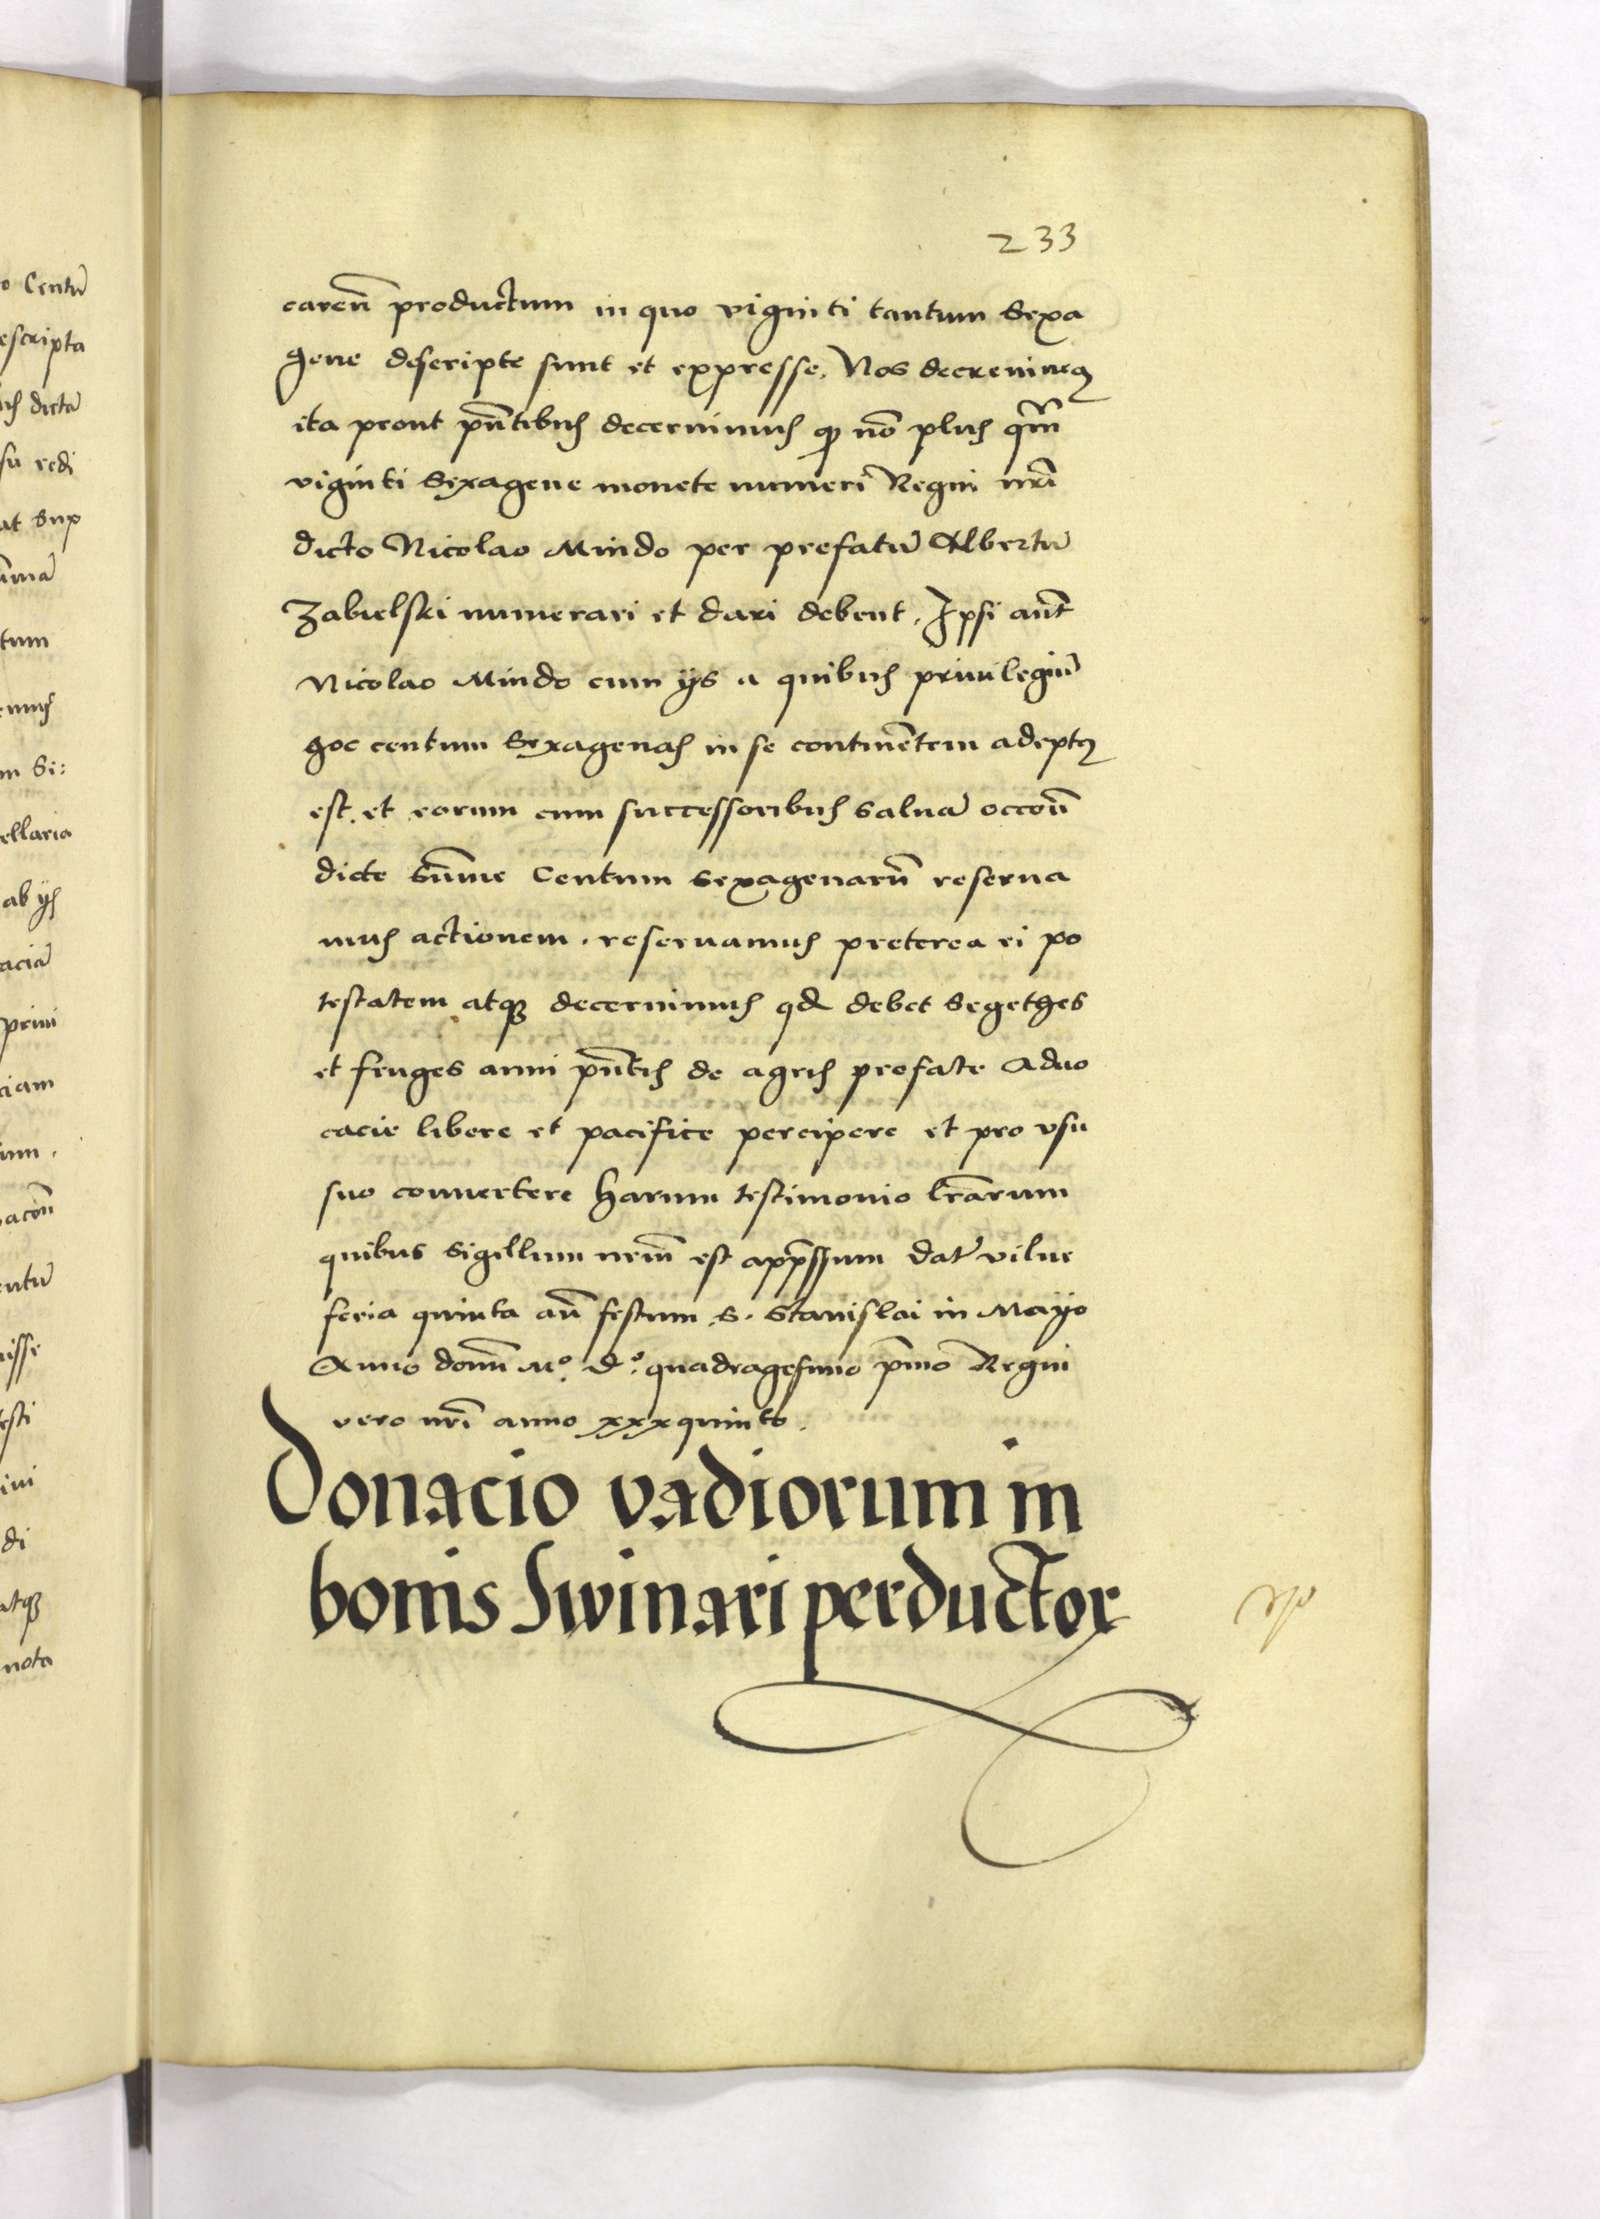 233
caren̄ productum in quo viginti tantum Sexa
gene descripte sunt et expresse. Nos decrevimus
ita prout pn̄tibus decernimus quod nō plus qm̄
viginti Sexagene monete numeri Regni nr̄i
dicto Nicolao Mindo per prefatū Albertū
Zabielski numerari et dari debent. Ipsi aūt
Nicolao Mindo cum ijs a quibus privilegiū
hoc centum Sexagenas in se continētem adeptus
est et eorum cum successoribus salvā occōn̄
dicte Sūme Centum sexagenarū reserva
mus actionem. reservamus preterea ei po
testatem atque decernimus quod debet Segethes
et fruges anni pn̄tis de agris prefate Advo
cacie libere et pacifice percipere et pro usu
suo convertere harum testimonio lr̄arum
quibus Sigillum nrm̄ est appressum dat vilne
feria quinta an̄ festum S. Stanislai in Mayo
Anno domī Mº. Dº. quadragesimo pmo Regni
vero nr̄i anno xxxquinto.
Donacio vadiorum in
bonis Swinari perductor
o Centū
escripta
is dictā
su redi
at Sup
ūmā
tum
emus
m Si:
ellaria
ab ijs
aciā
privi
ciam
acōn̄
entū
isse
esti
ini
di
atque
nota